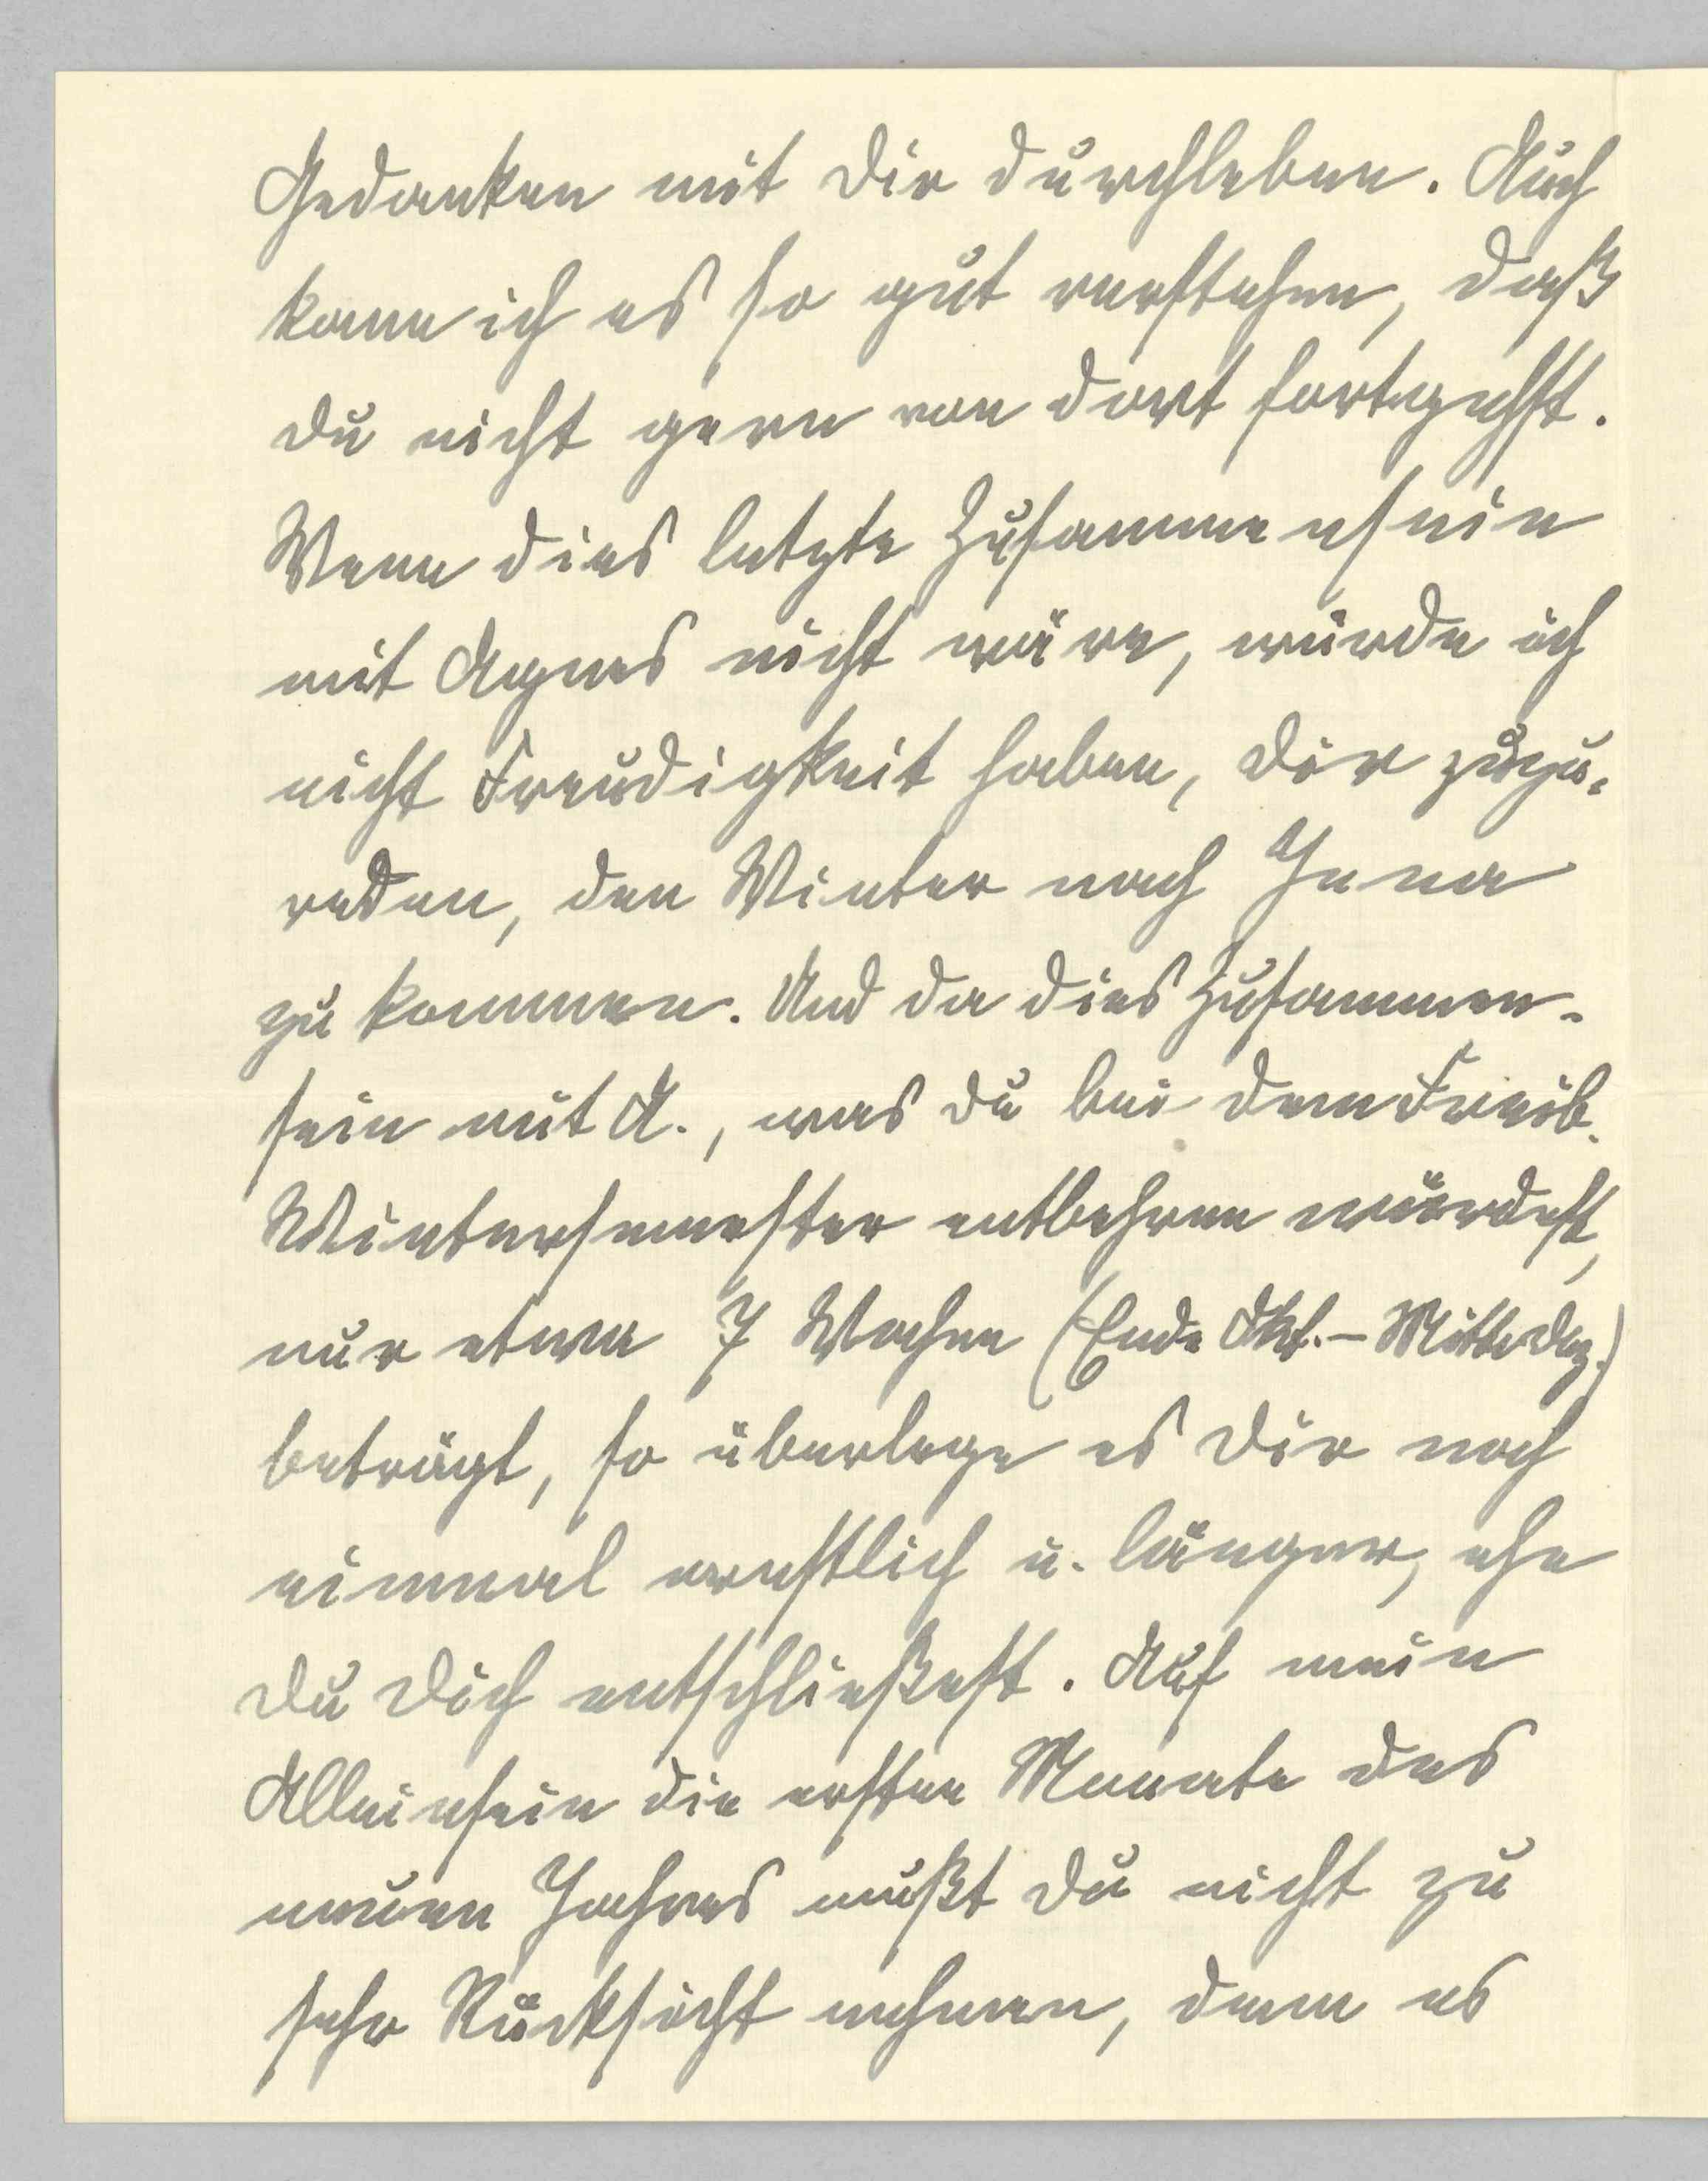 Gedanken mit Dir durchleben. Auch
kann ich es so gut verstehen, daß
Du nicht gern von dort fortgehst.
Wenn dies letzte Zusammensein
mit Agnes nicht wäre, würde ich
nicht Freudigkeit haben, Dir zuzu-
reden, den Winter nach Jena
zu kommen. Und da dies Zusammen-
sein mit A., was Du bei dem Freib.
Wintersemester entbehren würdest,
nur etwa 7 Wochen (Ende Okt. – Mitte Dez.)
beträgt, so überlege es Dir noch
einmal ernstlich u. länger, ehe
Du Dich entschließest. Auf mein
Alleinsein die ersten Monate des
neuen Jahres mußt Du nicht zu
sehr Rücksicht nehmen, denn es